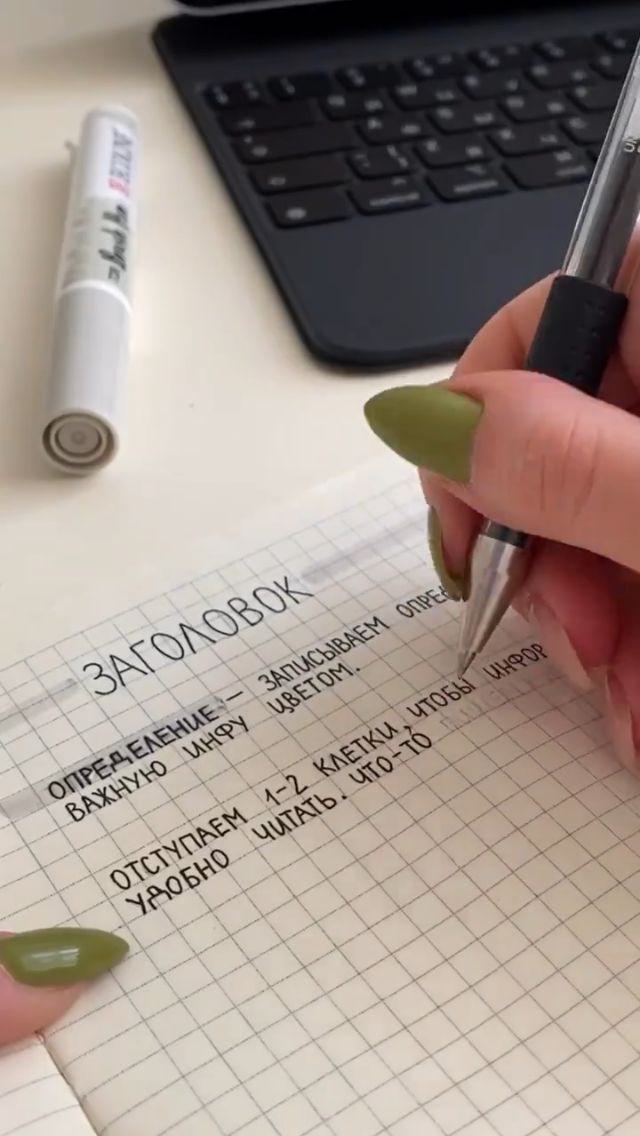 ЗАГОЛОВОК
ОПРЕДЕЛЕНИЕ — ЗАПИСЫВАЕМ
ВАЖНУЮ ИНФУ ЦВЕТОМ.
ОТСТУПАЕМ 1-2 КЛЕТКИ, ЧТОБЫ ИНФОР
УДОБНО ЧИТАТЬ. ЧТО-ТО
Brush Pen